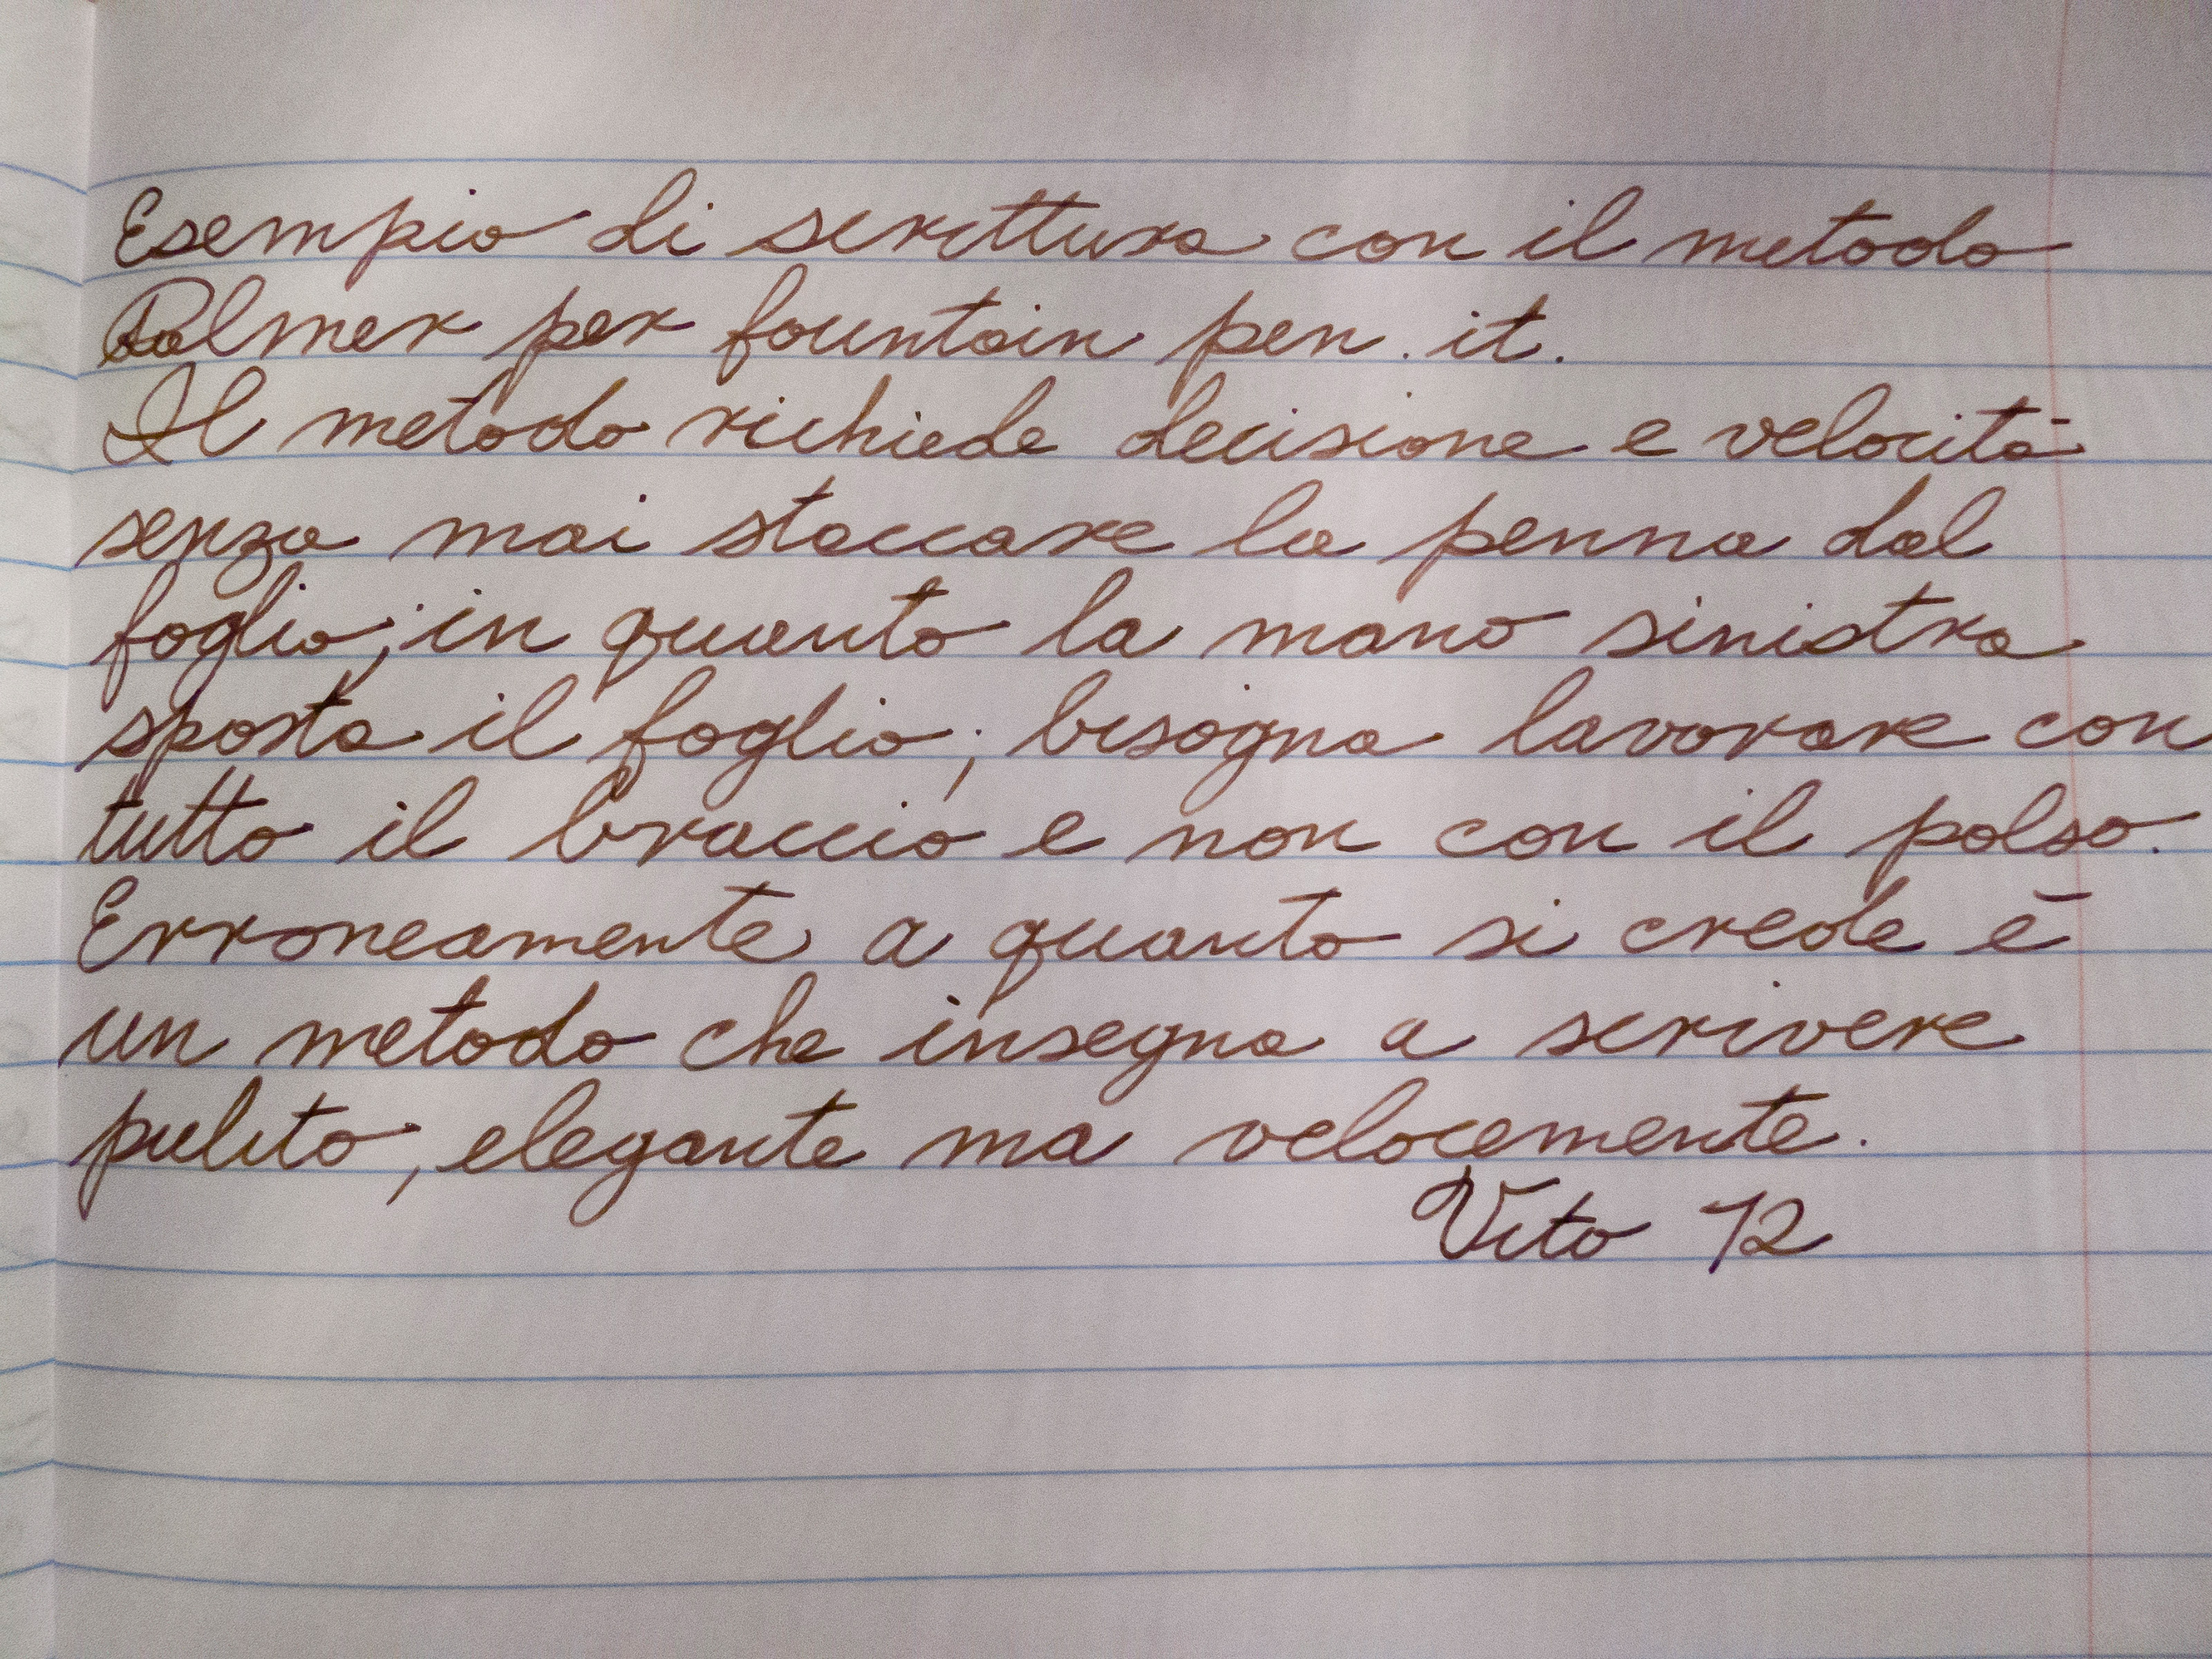 Esempio di scrittura con il metodo
Palmer per fountain pen. it.
Il metodo richiede decisione e velocità
senza mai staccare la penna dal
foglio, in quanto la mano sinistra
sposta il foglio; bisogna lavorare con
tutto il braccio e non con il polso.
Erroneamente a quanto si crede è
un metodo che insegna a scrivere
pulito, elegante ma velocemente.
Vito 72